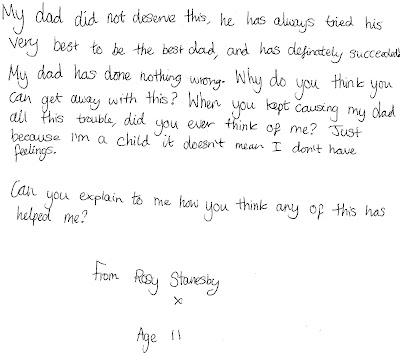 My dad did not deserve this, he has always tried his
very best to be the best dad, and has definately succeeded.
My dad has done nothing wrong. Why do you think you
can get away with this? When you kept causing my dad
all this trouble, did you ever think of me? Just
because I'm a child it doesn't mean I don't have
feelings.
Can you explain to me how you think any of this has
helped me?
From Rosy Stanesby
x
Age 11